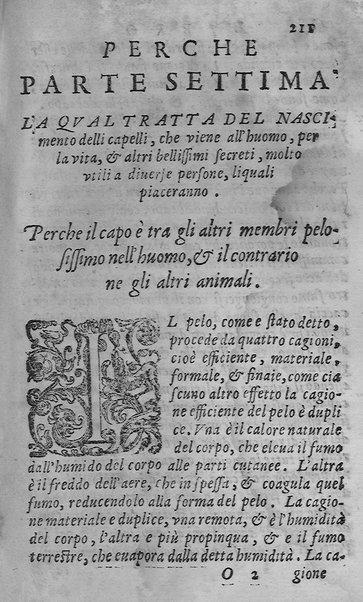 211
PERCHE
PARTE SETTIMA
LA QVAL TRATTA DEL NASCI-
mento delli capelli, che viene all'huomo, per
la vita, & altri bellissimi secreti, molto
vtili a diuerse persone, liquali
piaceranno.
Perche il capo è tra gli altri membri pelo-
sissimo nell'huomo, & il contrario
ne gli altri animali.
IL pelo, come e stato detto,
procede da quattro cagioni,
cioè efficiente, materiale,
formale, & finale, come cia
scuno altro effetto la cagio-
ne efficiente del pelo è dupli
ce. Vna è il calore naturale
del corpo, che eleua il fumo
dall'humido del corpo alle parti cutanee. L'altra
è il freddo dell'aere, che inspessa, & coagula quel
fumo, reducendolo alla forma del pelo. La cagio-
ne materiale e duplice, vna remota, & è l'humidità
del corpo, l'altra e più propinqua, & e il fumo
terrestre, che euapora dalla detta humidità. La ca-
O 2 gione